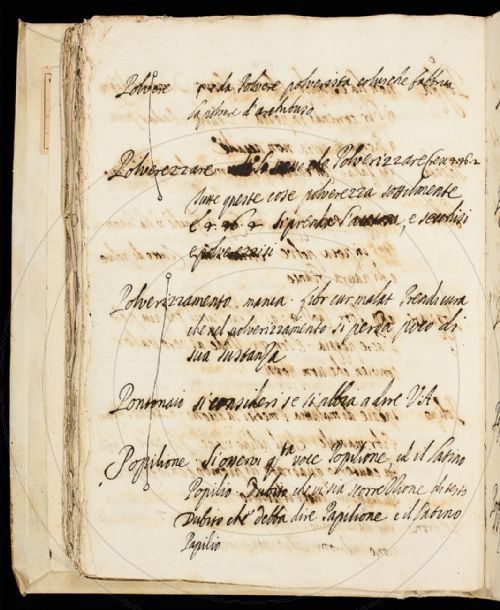 Polvere da Polvere polverista colui che fabbrica
la polvere d'archibuso
Polverezzare Polverizzare
tutte queste cose polverezza sottilmente
si prende, e secodisi
e polverezisi
Polverizzamento manca. libr cur malat Prendi cura
che nel polverizzamento si perda poco di
sua sustanza
Pontonaio si consideri se si abbia a dire VA
Popilione. Si osservi qta voce Popilione, ed il latino
Popilio. Dubito che vi sia scorrezione di testo
Dubito che debba dire Papilione e il latino
Papilio